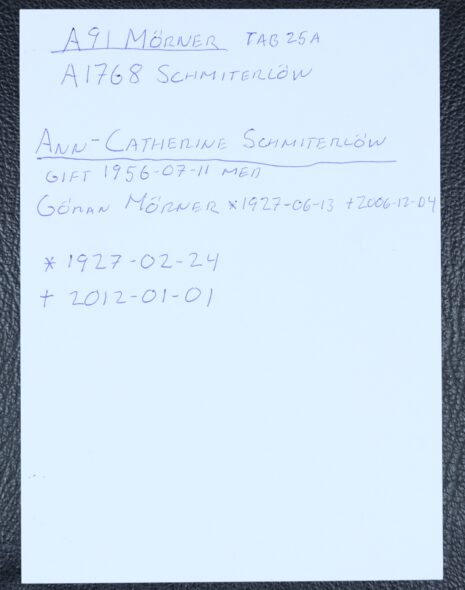 A91 MÖRNER TAB 25A
A1768 SCHMITERLÖW
ANN-CATHERINE SCHMITERLÖW
GIFT 1956-07-11 MED
GÖRAN MÖRNER *1927-06-13 +2006-12-04
* 1927-02-24
+ 2012-01-01